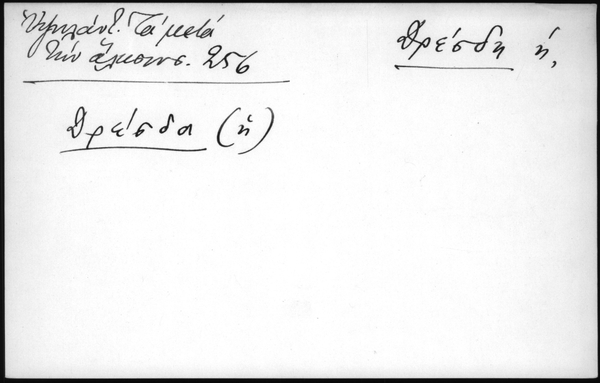 Ὑψηλάντ. Τὰ μετὰ
τὴν ἅλωσιν. 256
Δρέσδη ἡ,
Δρέσδα (ἡ)